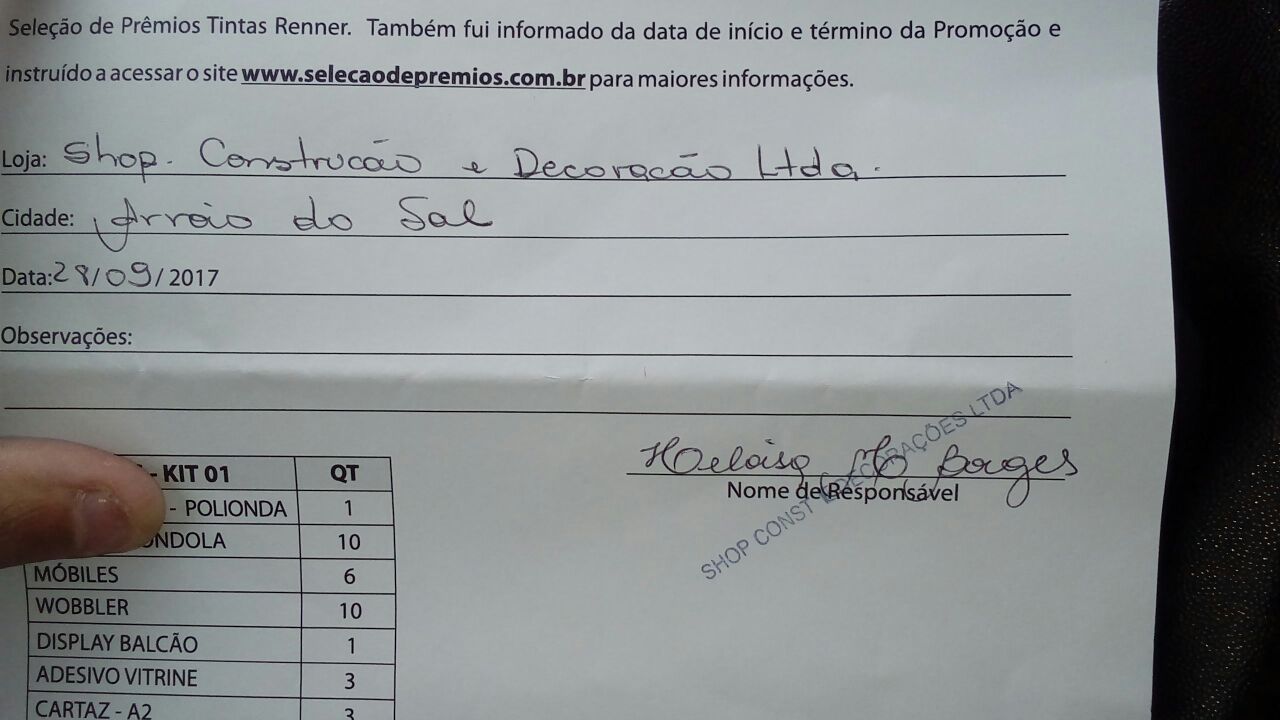 Seleção de Prêmios Tintas Renner. Também fui informado da data de início e término da Promoção e
instruído a acessar o site www.selecaodepremios.com.br para maiores informações.
Loja: Shop. Construcão e Decoracão Ltda.
Cidade: Arroio do Sal
Data: 28/09/2017
Observações:
Heloisa Borges
Nome de Responsável
SHOP CONST DECORAÇÕES LTDA
- KIT 01 QT
- POLIONDA 1
NDOLA 10
MÓBILES 6
WOBBLER 10
DISPLAY BALCÃO 1
ADESIVO VITRINE 3
CARTAZ - A2 3